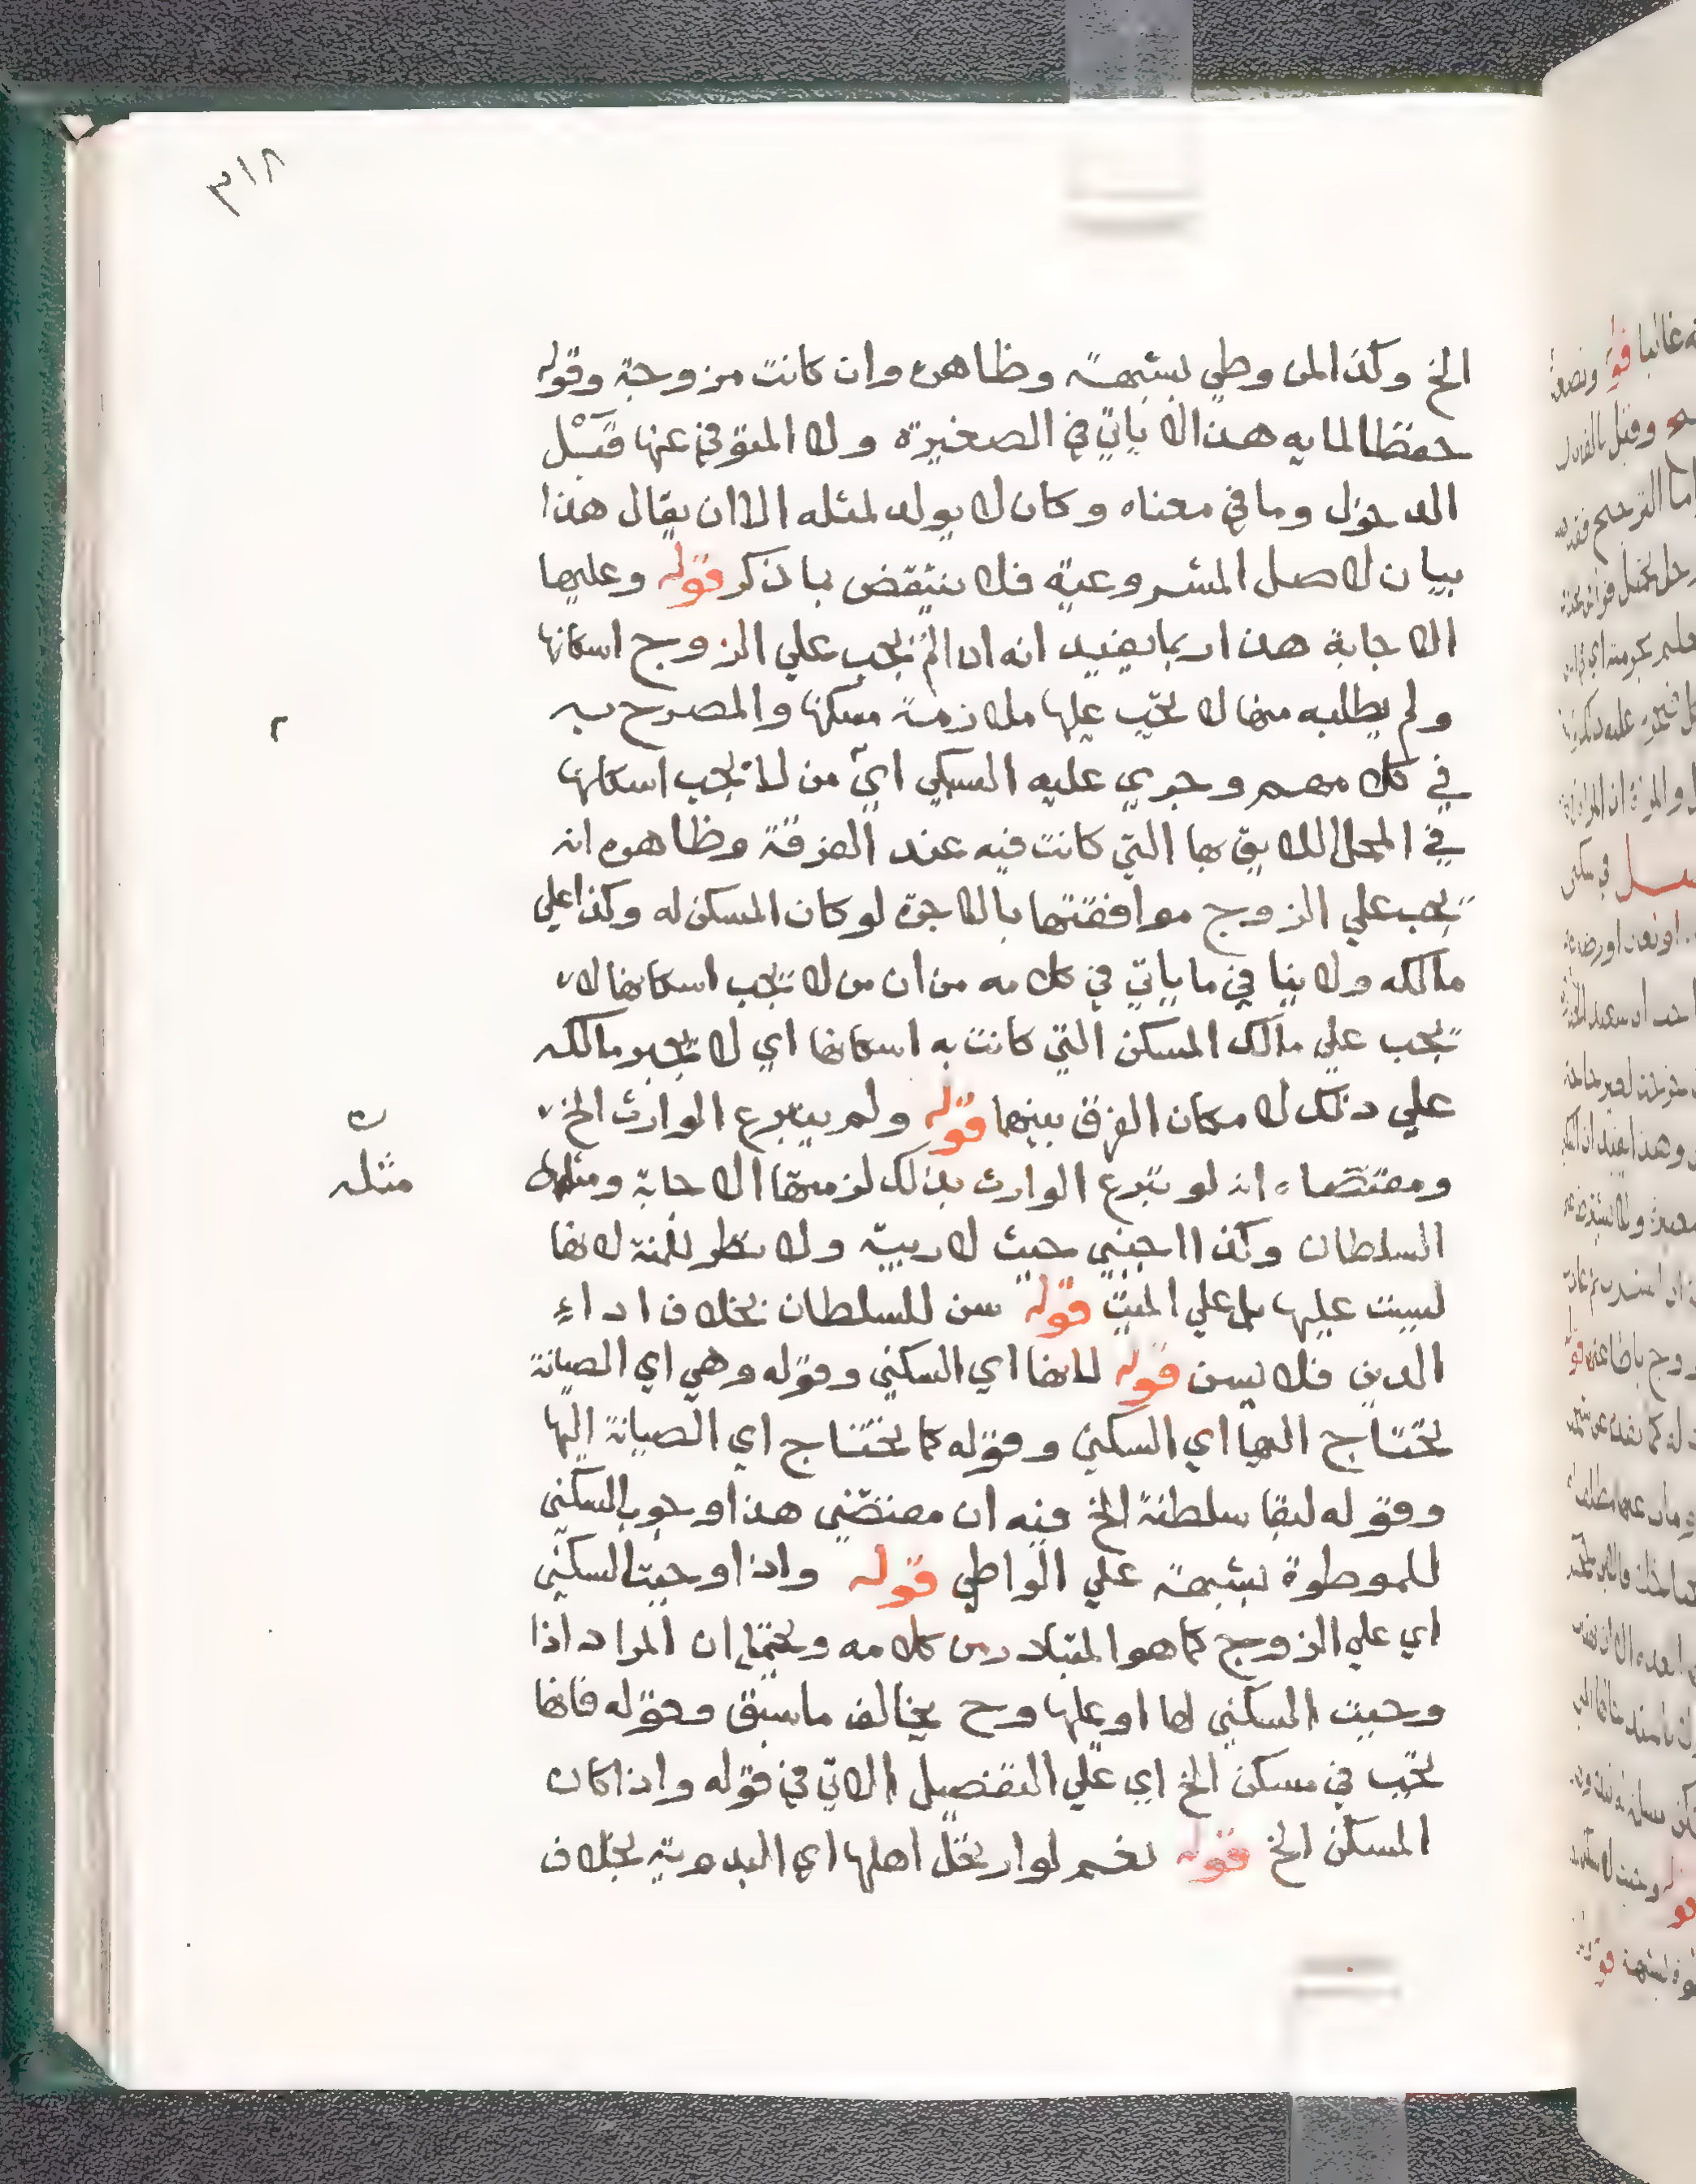 ٣١٨
الخ وكذا لمن وطي بشبهة وظاهره وان كانت مزوجة وقوله
حفظا لمايه هذا لا ياتي في الصغيرة ولا المتوفي عنها قَبْل
الدخول وما في معناه وكان لا يولد لمثله الا ان يقال هذا
بيان لاصل المشروعية فلا ينتقض بما ذكر قوله وعليها
الاجابة هذا ربما يفيد انه اذا لم يجب علي الزوج اسكانها
ولم يطلبه منها لا يجب عليها ملازمة مسكنها والمصرح به
في كلامهم وجري عليه السبكي اي من لا يجب اسكانها
في المحل اللايق بها التي كانت فيه عند الفرقة وظاهره انه
يجب علي الزوج موافقتها بالاجرة لو كان المسكن له وكذا علي
مالكه ولا ينافي ما ياتي في كلامه من ان من لا يجب اسكانها لا
يجب علي مالك المسكن التي كانت به اسكانها اي لا يجبر مالكه
علي ذلك لامكان الفرق بينهما قوله ولم يتبرع الوارث الخ
ومقتضاه انه لو تبرع الوارث بذلك لزمتها الاجابة ومثله
ن
مثله
السلطان وكذا اجنبي حيث لا ريبة ولا نظر للمنة لانها
ليست عليها بل علي الميت قوله سن للسلطان بخلاف اداء
الدين فلا يسن قوله لانها اي السكني وقوله وهي اي الصيانة
تحتاج اليها اي السكني وقوله كما تحتاج اي الصيانة اليها
وقوله لبقا سلطنة الخ فيه ان مقتضي هذا وجوب السكني
للموطوة بشبهة علي الواطي قوله واذا وجبت السكني
اي علي الزوج كما هو المتبادر من كلامه ويحتمل ان المراد اذا
وجبت السكني لها او عليها وح يخالف ما سبق وقوله فانها
تجب في مسكن الخ اي علي التفصيل الاتي في قوله واذا كان
المسكن الخ قوله نعم لو ارتحل اهلها اي البدوية بخلاف